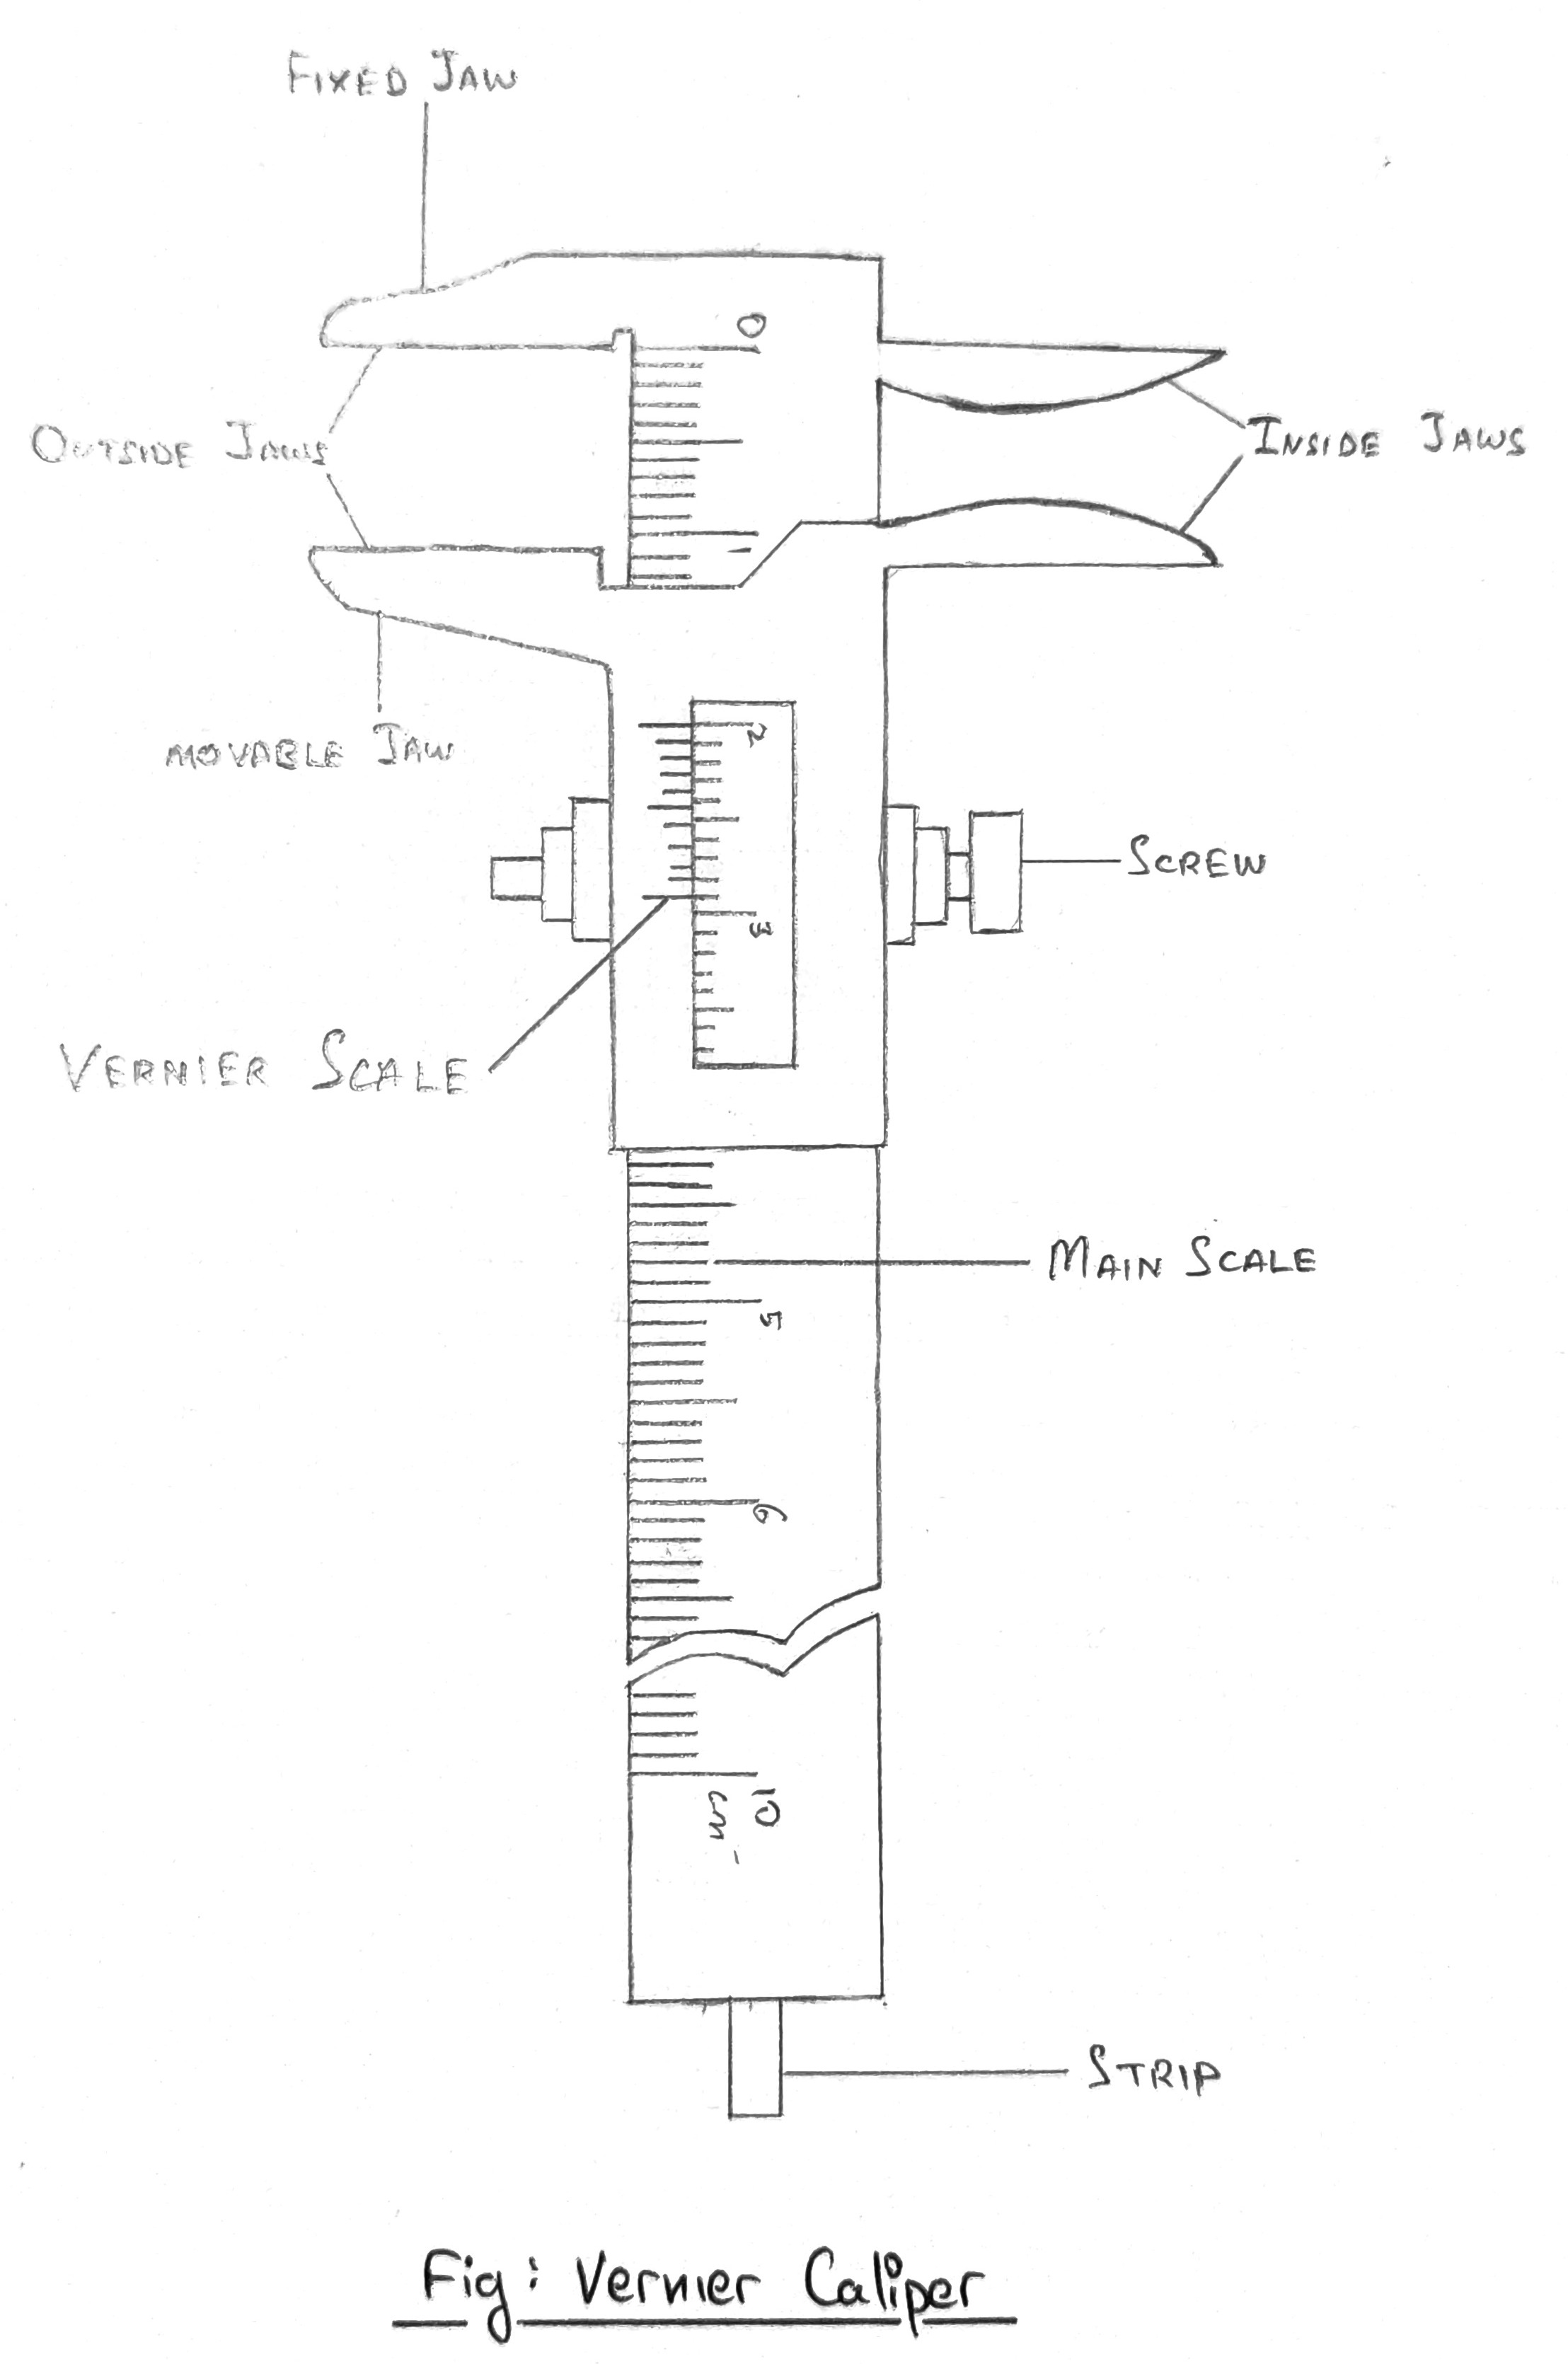 FIXED JAW
0
OUTSIDE JAWS
INSIDE JAWS
MOVABLE JAW
2
SCREW
3
VERNIER SCALE
MAIN SCALE
5
6
10
cm
STRIP
Fig: Vernier Caliper